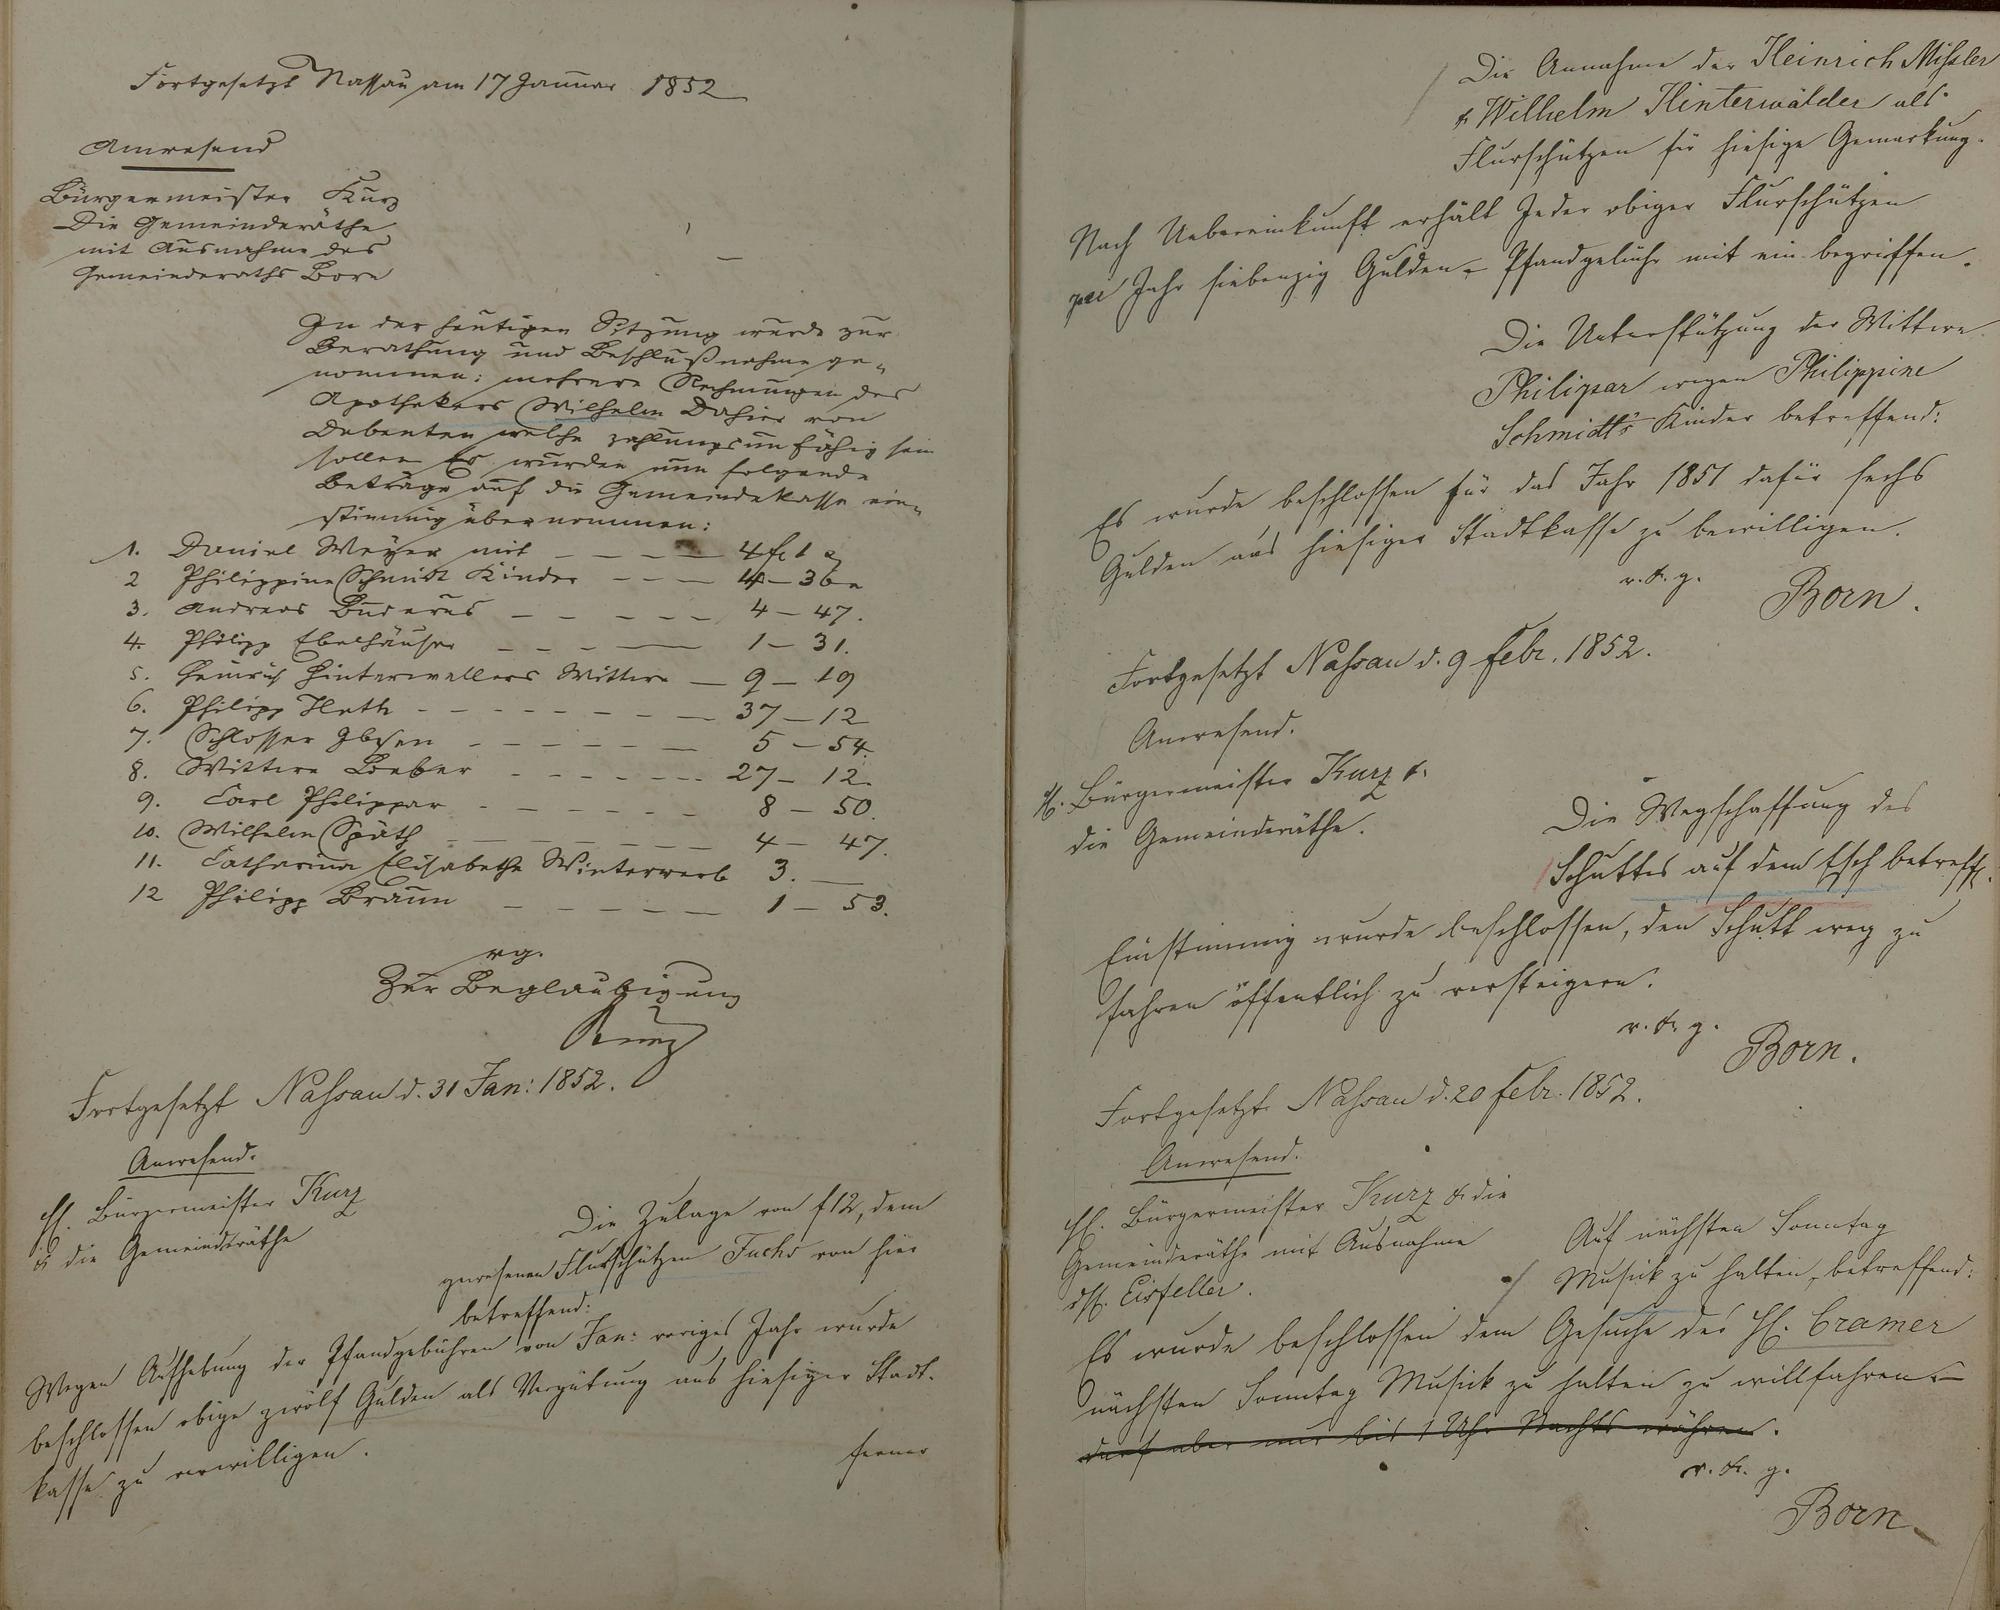 Fortgesetzt Nassau am 17 Januar 1852
Anwesend
Bürgermeister Kurz
Die Gemeinderäthe
mit Ausnahme des
Gemeinderaths Born
In der heutigen Sitzung wurde zur
Berathung und Beschlußnahme ge-
nommen: mehrere Rechnungen des
Apothekers Wilhelm Dahier von
Debenten welche zahlungsunfähig sein
sollen Es wurden nun folgende
Beträge auf die Gemeindekasse ein-
stimmig übernommen:
1. Daniel Meyer mit — — — — 4 fl 1
2 Philippine Schmidt Kinder — — — 4 — 36
3. Andreas Buderus — — — — — 4 — 47.
4. Philipp Ebelhäuser — — — — 1 — 31.
5. Heinrich Hinterwellers Wittwe — 9 — 19
6. Philipp Huth - - - - - - - — 37 — 12
7. Schlosser — — — — — — 5 — 54.
8. Wittwe - - - - - - 27 — 12.
9. Carl Philippar - - - - - - 8 — 50.
10. Wilhelm Späth — — — — — — 4 — 47.
11. Catharina Elisabetha Winterwerb 3. —
12 Philipp Braun — — — — — 1 — 53.
vg.
Zur Beglaubigung
Kurz
Fortgesetzt Nassau d. 31 Jan: 1852.
Anwesend.
H. Bürgermeister Kurz
& die Gemeinderäthe
Die Zulage von f 12, dem
gewesenen Flurschützen Fuchs von hier
betreffend:
Wegen Aufhebung der Pfandgebühren von Jan: voriges Jahr wurde
beschlossen obige zwölf Gulden als Vergütung aus hiesiger Stadt-
kasse zu verwilligen.
ferner
Die Annahme der Heinrich Missler
& Wilhelm Hinterwälder als
Flurschützen für hiesige Gemarkung.
Nach Uebereinkunft erhält Jeder obiger Flurschützen
per Jahr siebenzig Gulden - Pfandgebühr mit ein begriffen.
Die Unterstützung der Wittwe
Philippar wegen Philippine
Schmidt's Kinder betreffend:
Es wurde beschlossen für das Jahr 1851 dafür sechs
Gulden aus hiesiger Stadtkasse zu bewilligen.
v. & g.
Born.
Fortgesetzt Nassau d. 9 Febr. 1852.
Anwesend.
H. Bürgermeister Kurz &
die Gemeinderäthe.
Die Wegschaffung des
Schuttes auf dem Esch betreff.
Einstimmig wurde beschlossen, den Schutt weg zu
fahren öffentlich zu versteigern.
v. & g.
Born.
Fortgesetzt Nassau d. 20 Febr. 1852.
Anwesend.
H. Bürgermeister Kurz & die
Gemeinderäthe mit Ausnahme
d H. Eisfeller.
Auf nächsten Sonntag
Musick zu halten, betreffend:
Es wurde beschlossen dem Gesuche des H. Cramer
nächsten Sonntag Musick zu halten zu willfahren. —
darf aber nur bis 1 Uhr Nachts währen.
v. & g.
Born